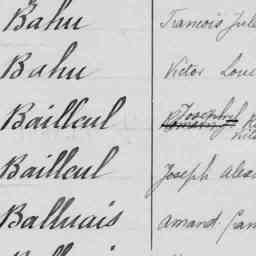 Bahu François Jule
Bahu Victor Loui
Bailleul Joseph
Bailleul Joseph Alex
Balluais Amand